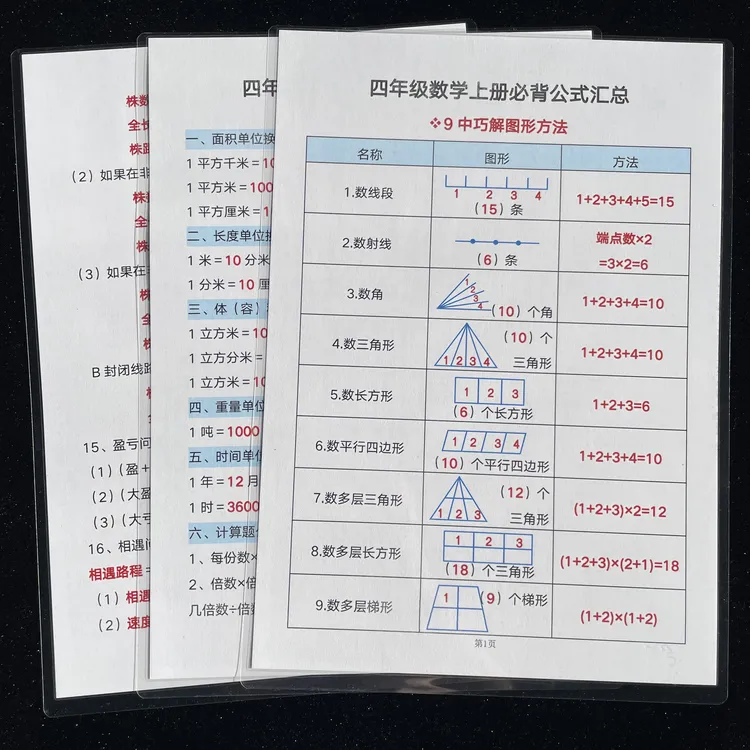 株
全长
株距
(2) 如果在非
株
全长
株
(3) 如果在
株
全
株
B 封闭线路
15、盈亏问
(1)(盈+
(2)(大盈
(3)(大亏
16、相遇问
相遇路程=
(1) 相遇
(2) 速度
四年
一、面积单位换
1 平方千米=10
1 平方米=100
1 平方厘米=1
二、长度单位换
1 米=10 分米
1 分米=10 厘
三、体(容)
1 立方米=10
1 立方分米=
1 立方米=10
四、重量单位
1 吨=1000
五、时间单位
1 年=12 月
1 时=3600
六、计算题
1、每份数×
2、倍数×倍
几倍数÷倍数
四年级数学上册必背公式汇总
❖9 中巧解图形方法
名称 图形 方法
1.数线段 1 2 3 4 (15) 条 1+2+3+4+5=15
2.数射线 (6) 条 端点数×2
=3×2=6
3.数角 1 2 3 4 (10) 个角 1+2+3+4=10
4.数三角形 1 2 3 4 (10) 个
三角形 1+2+3+4=10
5.数长方形 1 2 3 (6) 个长方形 1+2+3=6
6.数平行四边形 1 2 3 4 (10) 个平行四边形 1+2+3+4=10
7.数多层三角形 1 2 3 (12) 个
三角形 (1+2+3)×2=12
8.数多层长方形 1 2 3 (18) 个三角形 (1+2+3)×(2+1)=18
9.数多层梯形 1 (9) 个梯形 (1+2)×(1+2)
第1页